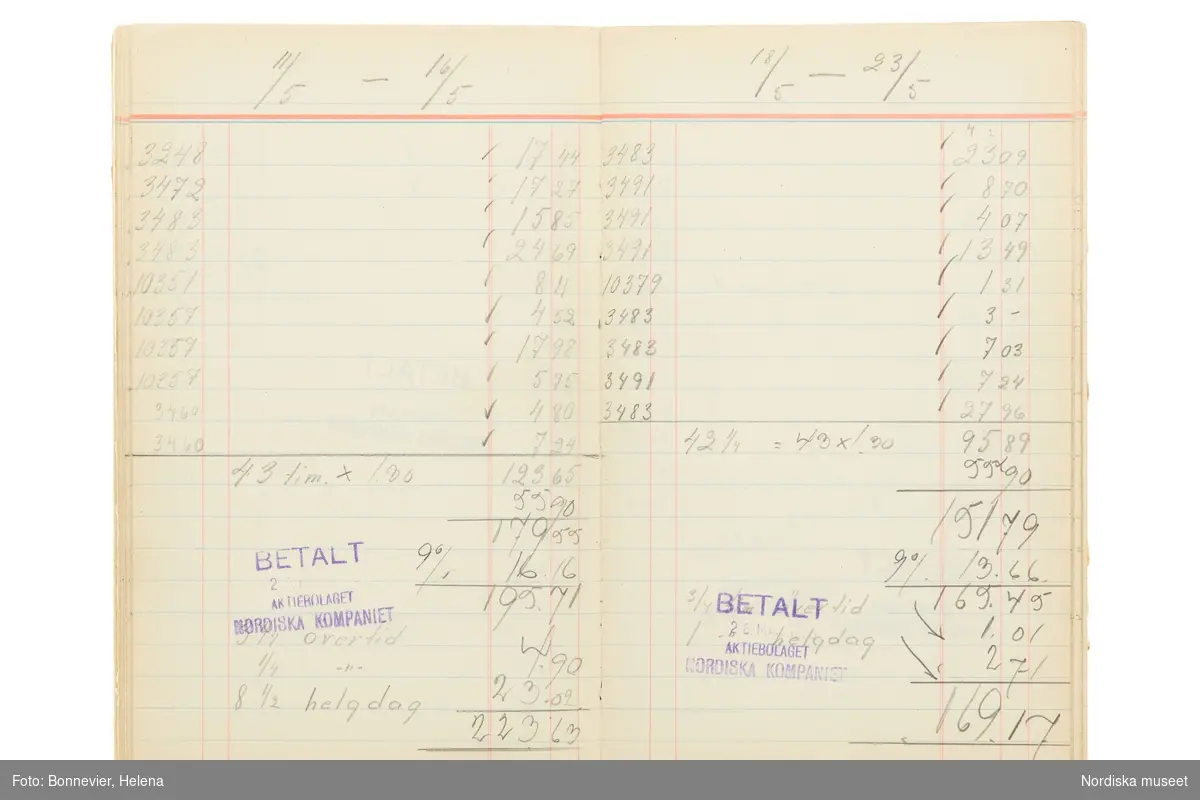 11/5 — 16/5
3248 17 44
3472 17 27
3483 15 85
3483 24 69
10351 8 11
10357 4 52
10357 17 98
10257 5 75
3460 4 80
3460 7 24
43 tim. x 1.30 123 65
55 90
179 55
9% 16.16
195.71
BETALT
2
AKTIEBOLAGET
NORDISKA KOMPANIET
övertid 4
1/4 -"- .90
8 1/2 helgdag 23.02
223.63
18/5 — 23/5
3483 23 09
3491 8 70
3491 4 07
3491 13 49
10379 1 31
3483 3 -
3483 7 03
3491 7 24
3483 27 96
42 1/4 = 43 x 1.30 95 89
55 90
151 79
9% 13.66
165.45
3/4 övertid 1.01
BETALT
1 helgdag 2 71
AKTIEBOLAGET
NORDISKA KOMPANIET
169.17
Foto: Bonnevier, Helena
Nordiska museet